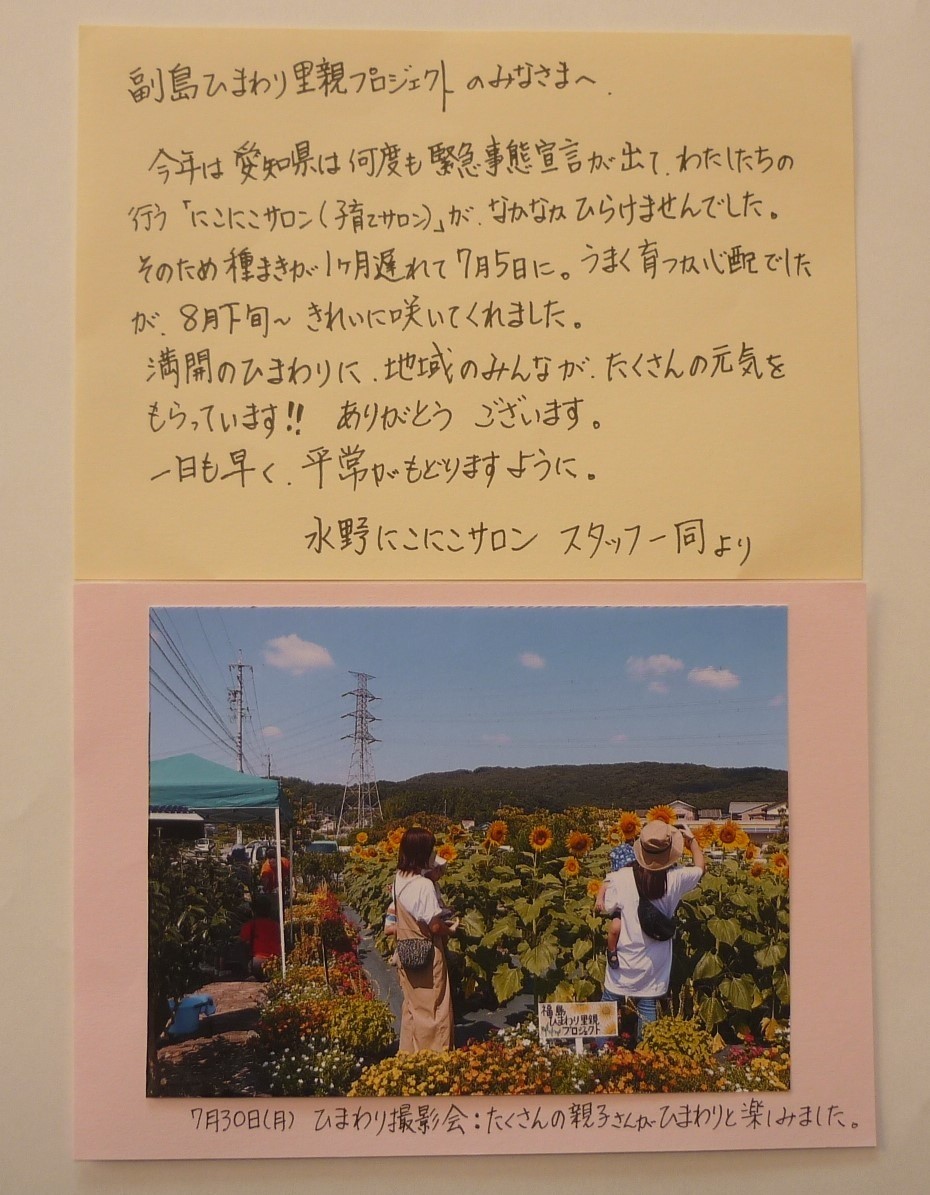 副島ひまわり里親プロジェクトのみなさまへ.
今年は愛知県は何度も緊急事態宣言が出て、わたしたちの
行う「にこにこサロン(子育てサロン)」が、なかなかひらけませんでした。
そのため種まきが1ヶ月遅れて7月5日に。うまく育つか心配でした
が、8月下旬〜きれいに咲いてくれました。
満開のひまわりに、地域のみんなが、たくさんの元気を
もらっています!! ありがとうございます。
一日も早く、平常がもどりますように。
水野にこにこサロン スタッフ一同より
福島
ひまわり里親
プロジェクト
7月30日(月) ひまわり撮影会:たくさんの親子さんがひまわりと楽しみました。